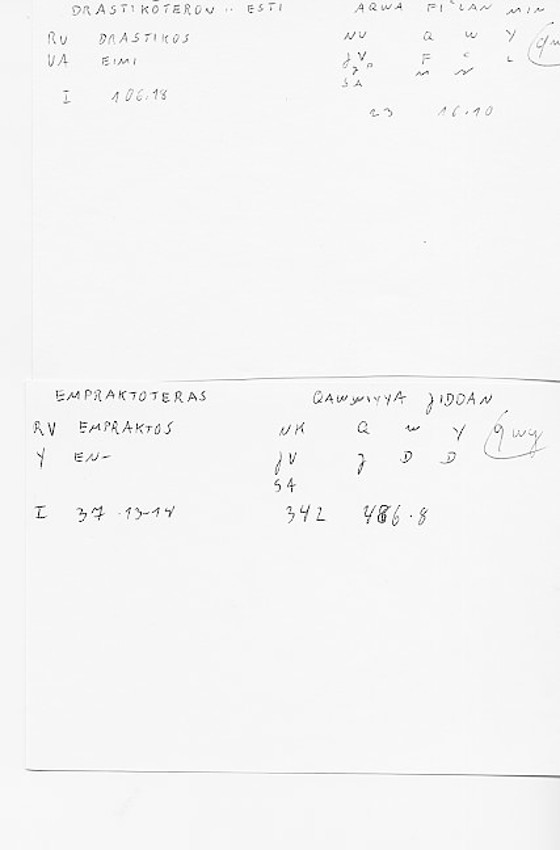 DRASTIKOTERON .. ESTI AQWA FI'LAN MIN
RV DRASTIKOS NV Q W Y
VA EIMI JV F ' L
M N
SA
I 106.18
23 16.10
EMPRAKTOTERAS QAWWIYYA JIDDAN
RV EMPRAKTOS NK Q W Y qwy
Y EN- JV J D D
SA
I 37.13-14 342 486.8